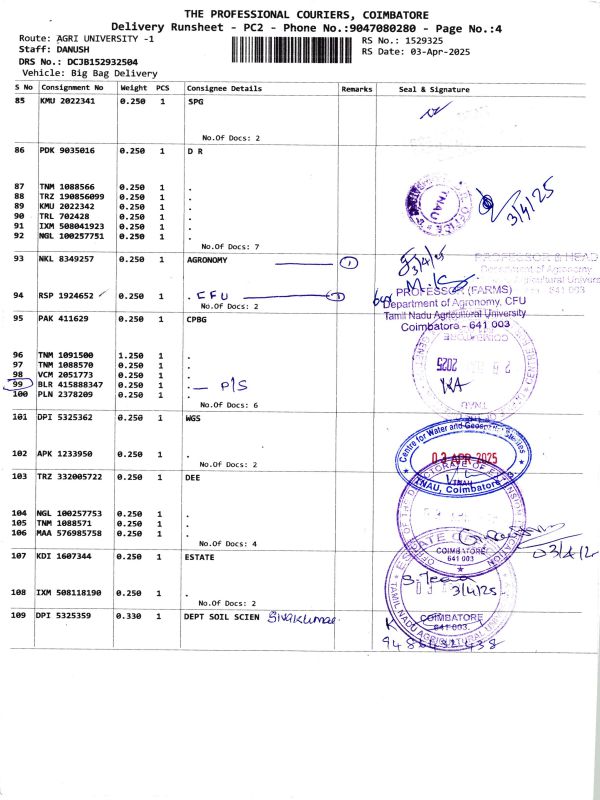 THE PROFESSIONAL COURIERS, COIMBATORE
Delivery Runsheet - PC2 - Phone No.:9047080280 - Page No.:4
Route: AGRI UNIVERSITY -1
RS No.: 1529325
Staff: DANUSH
RS Date: 03-Apr-2025
DRS No.: DCJB152932504
Vehicle: Big Bag Delivery
S No Consignment No Weight PCS Consignee Details Remarks Seal & Signature
85 KMU 2022341 0.250 1 SPG
No.Of Docs: 2
86 PDK 9035016 0.250 1 D R
87 TNM 1088566 0.250 1 .
88 TRZ 190856099 0.250 1 .
89 KMU 2022342 0.250 1 .
90 TRL 702428 0.250 1 .
91 IXM 508041923 0.250 1 .
92 NGL 100257751 0.250 1 .
No.Of Docs: 7
TNAU
3/4/25
93 NKL 8349257 0.250 1 AGRONOMY 1
3/4/25
PROFESSOR & HEAD
Department of Agronomy
94 RSP 1924652 0.250 1 . CFU 1
No.Of Docs: 2
PROFESSOR (FARMS)
Department of Agronomy, CFU
Tamil Nadu Agricultural University
Coimbatore - 641 003
95 PAK 411629 0.250 1 CPBG
COIMBATORE
2025
96 TNM 1091500 1.250 1 .
97 TNM 1088570 0.250 1 .
98 VCM 2051773 0.250 1 .
99 BLR 415888347 0.250 1 . P/S
100 PLN 2378209 0.250 1 .
No.Of Docs: 6
101 DPI 5325362 0.250 1 WGS
102 APK 1233950 0.250 1 .
No.Of Docs: 2
Centre for Water and Geospatial Studies
03 APR 2025
TNAU
TNAU, Coimbatore - 3.
103 TRZ 332005722 0.250 1 DEE
104 NGL 100257753 0.250 1 .
105 TNM 1088571 0.250 1 .
106 MAA 576985758 0.250 1 .
No.Of Docs: 4
COIMBATORE
641 003
107 KDI 1607344 0.250 1 ESTATE
108 IXM 508118190 0.250 1 .
No.Of Docs: 2
3/4/25
109 DPI 5325359 0.330 1 DEPT SOIL SCIEN Sivakumar
COIMBATORE
641 003.
TAMIL NADU AGRICULTURAL